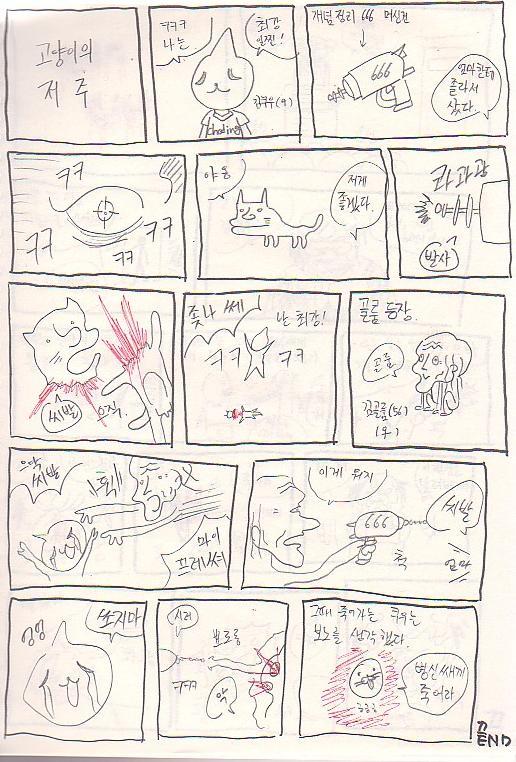 고양이의
저주
ㅋㅋㅋ
나는
최강
일진!
choding
개념 정리 666 머신건
666
엄마한테
졸라서
샀다.
ㅋㅋ
ㅋㅋ
ㅋㅋ
ㅋㅋ
야옹
저게
좋겠다.
콰과광
발사
씨발
오직.
좆나 쎄
난 최강!
ㅋㅋ
ㅋㅋ
골룸 등장.
골룸
김골룸(56)
으악
씨발
마이
프레셔
이게 뭐지
666
척
씨발
엄마
엉엉
쏘지마
시러
뾰로롱
ㅋㅋㅋ
악
그때 죽어가는 쿠우는
보노를 생각했다.
병신쌔끼
죽어라
끝
END